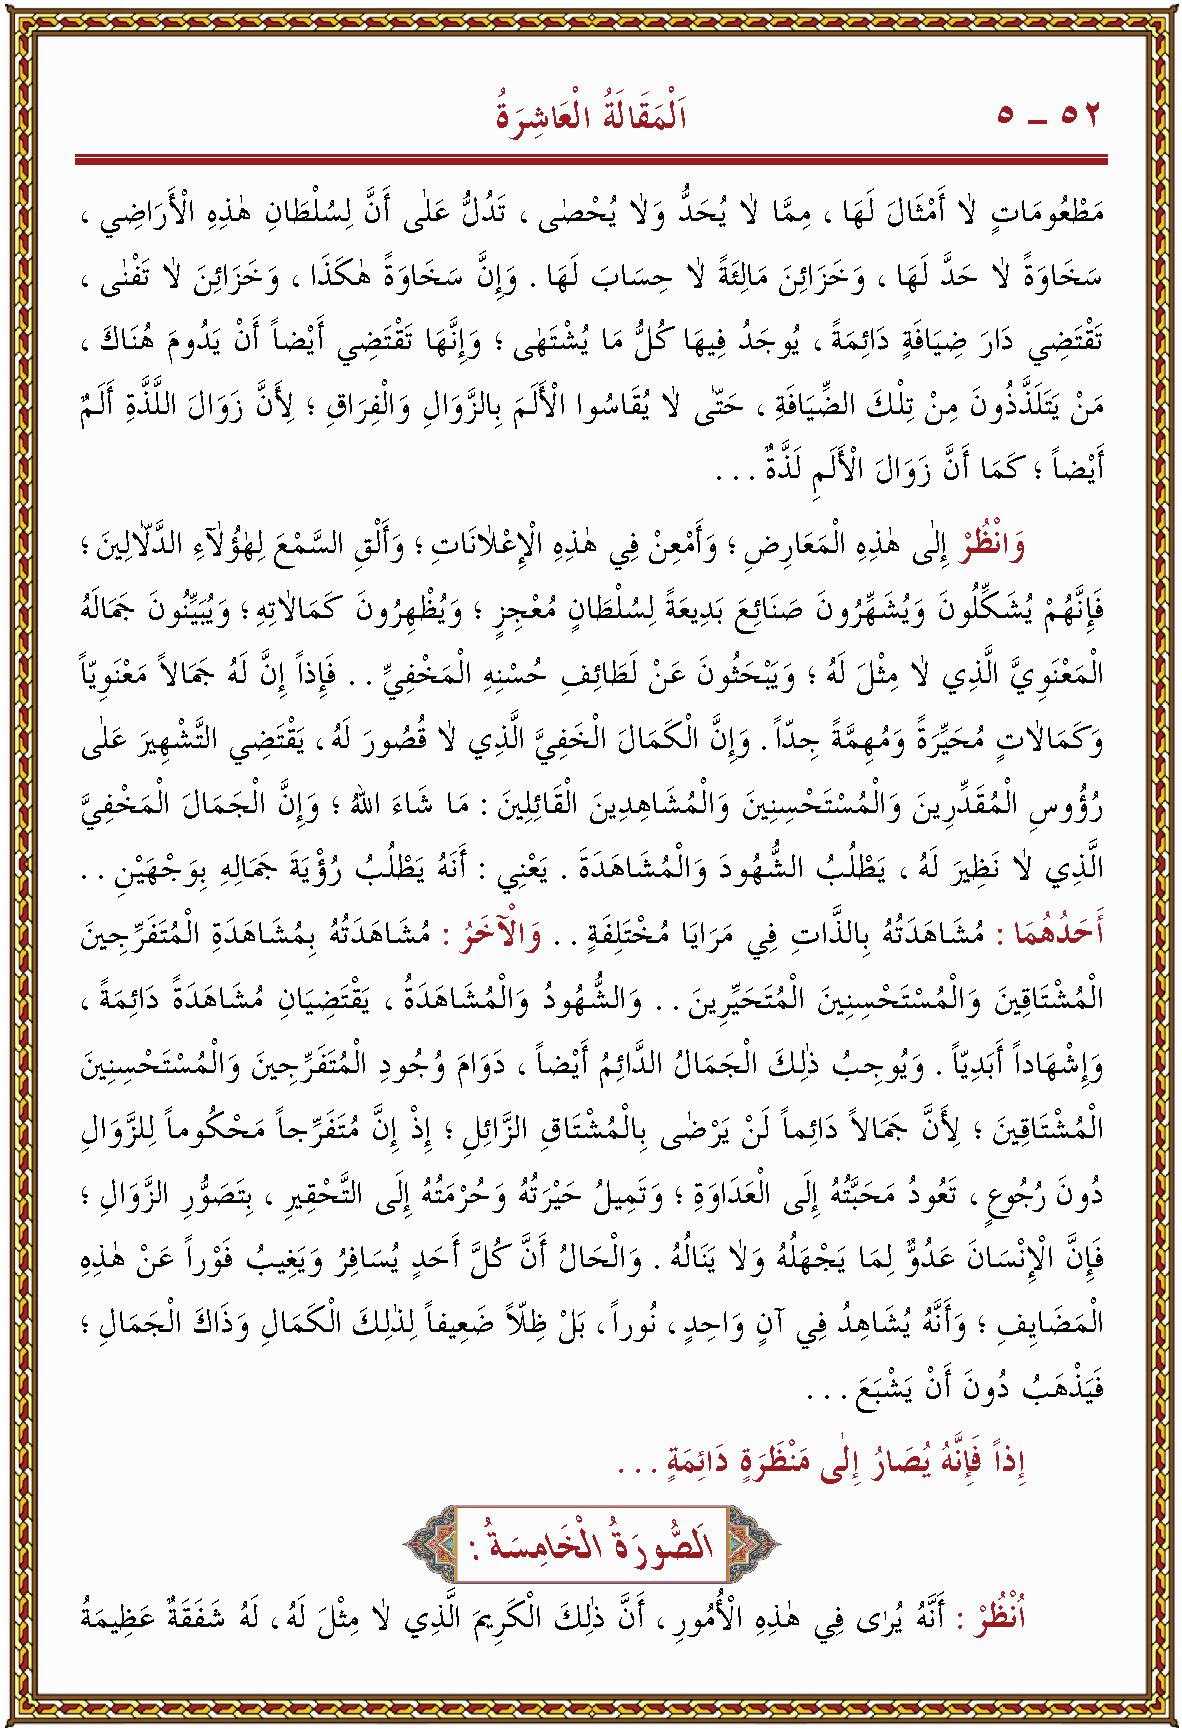 ٥٢ – ٥
اَلْمَقَالَةُ الْعَاشِرَةُ
مَطْعُومَاتٍ لاٰ أَمْثَالَ لَهَا ، مِمَّا لاٰ يُحَدُّ وَلاٰ يُحْصٰى ، تَدُلُّ عَلٰى أَنَّ لِسُلْطَانِ هٰذِهِ الْأَرَاضِي ،
سَخَاوَةً لاٰ حَدَّ لَهَا ، وَخَزَئِنَ مَالِئَةً لاٰ حِسَابَ لَهَا . وَإِنَّ سَخَاوَةً هٰكَذَا ، وَخَزَئِنَ لاٰ تَفْنٰى ،
تَقْتَضِي دَارَ ضِيَافَةٍ دَائِمَةً ، يُوجَدُ فِيهَا كُلُّ مَا يُشْتَهٰى ؛ وَإِنَّهَا تَقْتَضِي أَيْضاً أَنْ يَدُومَ هُنَاكَ ،
مَنْ يَتَلَذَّذُونَ مِنْ تِلْكَ الضِّيَافَةِ ، حَتّٰى لاٰ يُقَاسُوا الْأَلَمَ بِالزَّوَالِ وَالْفِرَاقِ ؛ لِأَنَّ زَوَالَ اللَّذَّةِ أَلَمٌ
أَيْضاً ؛ كَمَا أَنَّ زَوَالَ الْأَلَمِ لَذَّةٌ . . .
وَانْظُرْ إِلٰى هٰذِهِ الْمَعَارِضِ ؛ وَأَمْعِنْ فِي هٰذِهِ الْإِعْلاٰنَاتِ ؛ وَأَلْقِ السَّمْعَ لِهٰؤُلآٰءِ الدَّلاّٰلِينَ ؛
فَإِنَّهُمْ يُشَكِّلُونَ وَيُشَهِّرُونَ صَنَائِعَ بَدِيعَةً لِسُلْطَانٍ مُعْجِزٍ ؛ وَيُظْهِرُونَ كَمَالاٰتِهِ ؛ وَيُبَيِّنُونَ جَمَالَهُ
الْمَعْنَوِيَّ الَّذِي لاٰ مِثْلَ لَهُ ؛ وَيَبْحَثُونَ عَنْ لَطَائِفِ حُسْنِهِ الْمَخْفِيِّ . . فَإِذاً إِنَّ لَهُ جَمَالاً مَعْنَوِيّاً
وَكَمَالاٰتٍ مُحَيِّرَةً وَمُهِمَّةً جِدّاً . وَإِنَّ الْكَمَالَ الْخَفِيَّ الَّذِي لاٰ قُصُورَ لَهُ ، يَقْتَضِي التَّشْهِيرَ عَلٰى
رُؤُوسِ الْمُقَدِّرِينَ وَالْمُسْتَحْسِنِينَ وَالْمُشَاهِدِينَ الْقَائِلِينَ : مَا شَاءَ اللهُ ؛ وَإِنَّ الْجَمَالَ الْمَخْفِيَّ
الَّذِي لاٰ نَظِيرَ لَهُ ، يَطْلُبُ الشُّهُودَ وَالْمُشَاهَدَةَ . يَعْنِي : أَنَهُ يَطْلُبُ رُؤْيَةَ جَمَالِهِ بِوَجْهَيْنِ . .
أَحَدُهُمَا : مُشَاهَدَتُهُ بِالذَّاتِ فِي مَرَايَا مُخْتَلِفَةٍ . . وَالْآخَرُ : مُشَاهَدَتُهُ بِمُشَاهَدَةِ الْمُتَفَرِّجِينَ
الْمُشْتَاقِينَ وَالْمُسْتَحْسِنِينَ الْمُتَحَيِّرِينَ . . وَالشُّهُودُ وَالْمُشَاهَدَةُ ، يَقْتَضِيَانِ مُشَاهَدَةً دَائِمَةً ،
وَإِشْهَاداً أَبَدِيّاً . وَيُوجِبُ ذٰلِكَ الْجَمَالُ الدَّائِمُ أَيْضاً ، دَوَامَ وُجُودِ الْمُتَفَرِّجِينَ وَالْمُسْتَحْسِنِينَ
الْمُشْتَاقِينَ ؛ لِأَنَّ جَمَالاً دَائِماً لَنْ يَرْضٰى بِالْمُشْتَاقِ الزَّائِلِ ؛ إِذْ إِنَّ مُتَفَرِّجاً مَحْكُوماً لِلزَّوَالِ
دُونَ رُجُوعٍ ، تَعُودُ مَحَبَّتُهُ إِلَى الْعَدَاوَةِ ؛ وَتَمِيلُ حَيْرَتُهُ وَحُرْمَتُهُ إِلَى التَّحْقِيرِ ، بِتَصَوُّرِ الزَّوَالِ ؛
فَإِنَّ الْإِنْسَانَ عَدُوٌّ لِمَا يَجْهَلُهُ وَلاٰ يَنَالُهُ . وَالْحَالُ أَنَّ كُلَّ أَحَدٍ يُسَافِرُ وَيَغِيبُ فَوْراً عَنْ هٰذِهِ
الْمَضَايِفِ ؛ وَأَنَّهُ يُشَاهِدُ فِي آنٍ وَاحِدٍ ، نُوراً ، بَلْ ظِلّاً ضَعِيفاً لِذٰلِكَ الْكَمَالِ وَذَاكَ الْجَمَالِ ؛
فَيَذْهَبُ دُونَ أَنْ يَشْبَعَ . . .
إِذاً فَإِنَّهُ يُصَارُ إِلٰى مَنْظَرَةٍ دَائِمَةٍ . . .
اَلصُّورَةُ الْخَامِسَةُ :
اُنْظُرْ : أَنَّهُ يُرٰى فِي هٰذِهِ الْأُمُورِ ، أَنَّ ذٰلِكَ الْكَرِيمَ الَّذِي لاٰ مِثْلَ لَهُ ، لَهُ شَفَقَةٌ عَظِيمَةُ